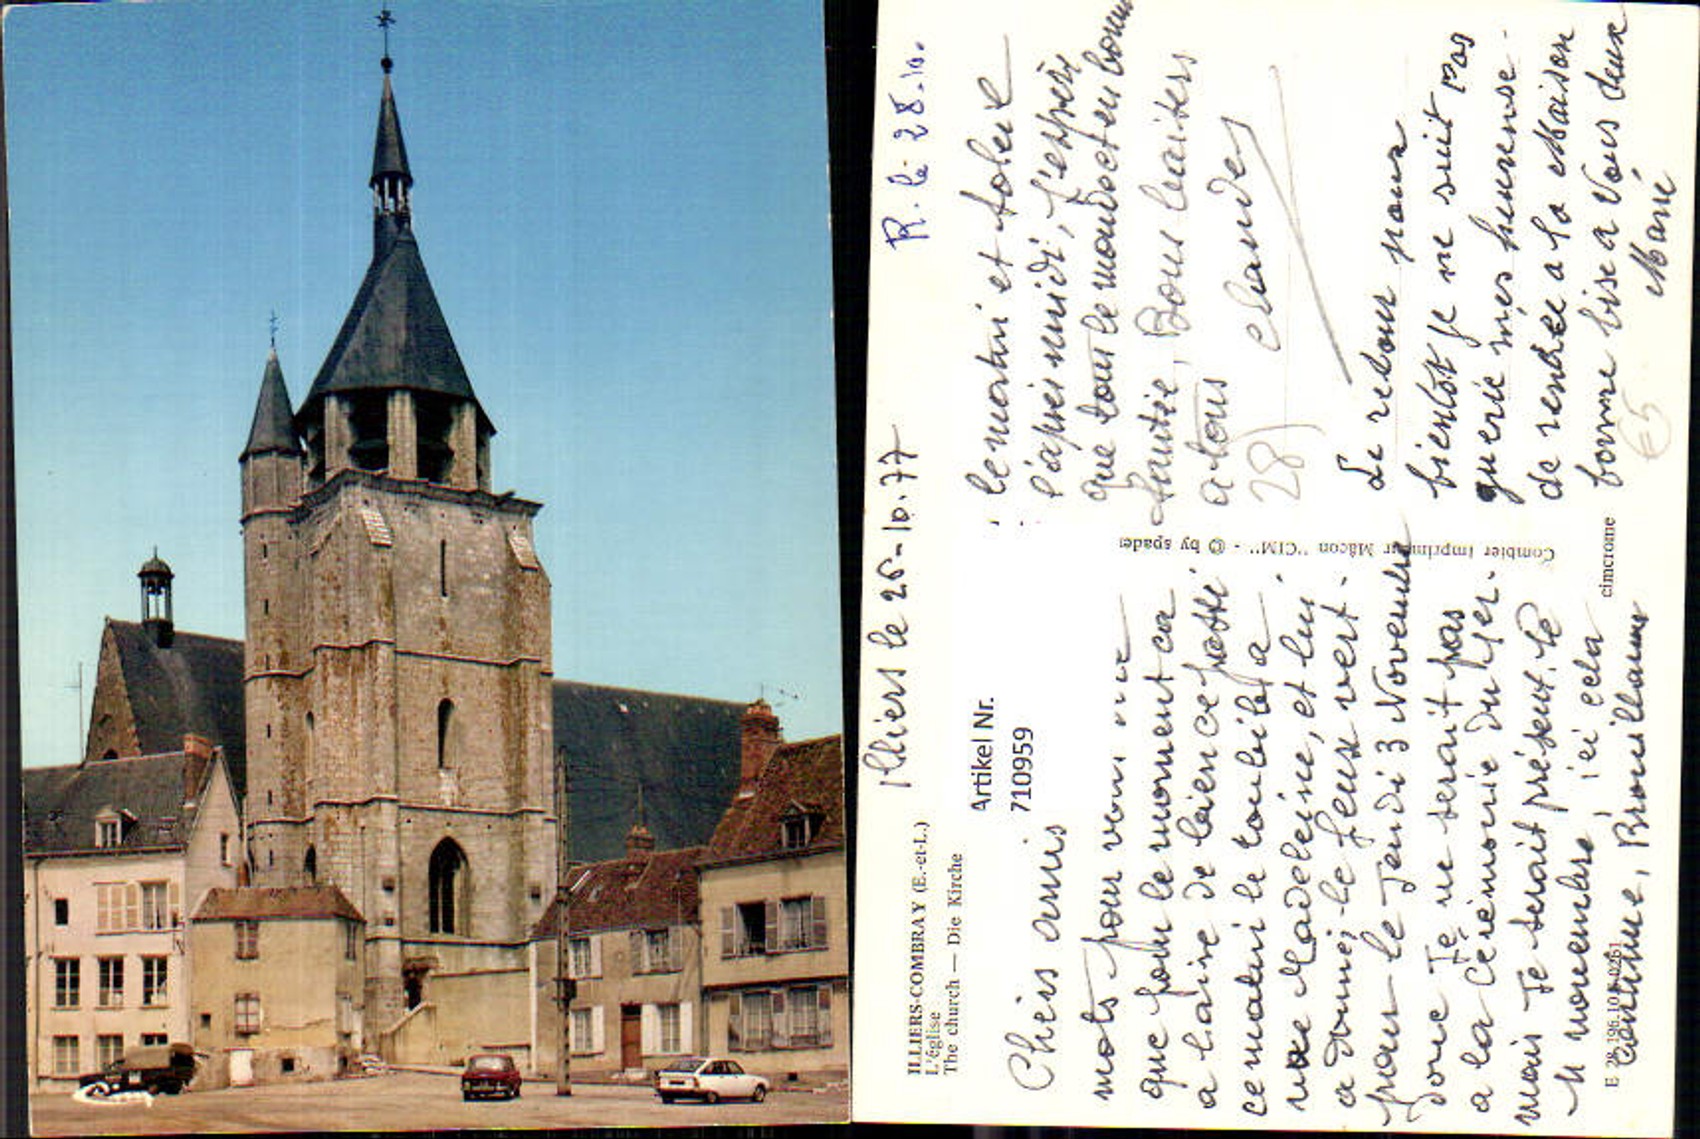 R. le 28.10.
Illiers le 25-10-77
ILLIERS-COMBRAY (E.-et-L.)
L'église
The church — Die Kirche
Artikel Nr.
710959
Cheis amis
mots pour vous
que pour le moment ca
a l'aire de bien ce passé
ce matin le toubib a
vue Madeleine, et lui
a donné le feux vert.
pour le jendi 3 Novembre
donc Je ne serait pas
a la cérémonie du 1er.
mais Je serait présent le
11 novembre, ici cela
continue, Brouillams
le matin et soleil
l'après midi, J'espère
que tout le monde et en bonne
Santée, Bons baisers
a tous Claude
28
Le retour pour
bientôt je ne suit pas
guerie mes heureuse.
de rentrée a la Maison
bonne bise a Vous deux
Marie
€5
Combier Imprimeur Mâcon "CIM" - © by spadem
cimcrome
E 28.196.10